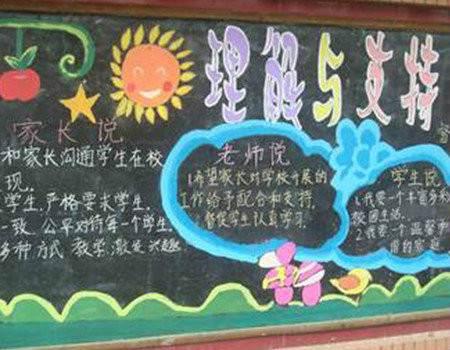 理解与支持
家长说
和家长沟通学生在校
现.
学生,严格要求学生.
一致、公平对待每一个学生.
多种方式教学,激发兴趣
老师说
1.希望家长对学校开展的
工作给予配合和支持.
督促学生认真学习.
学生说
1.我要一个丰富多
校园生活.
2.我要一个温馨和
谐的家庭